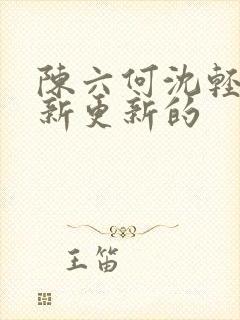 陳六何沈輕
新更新的
王笛